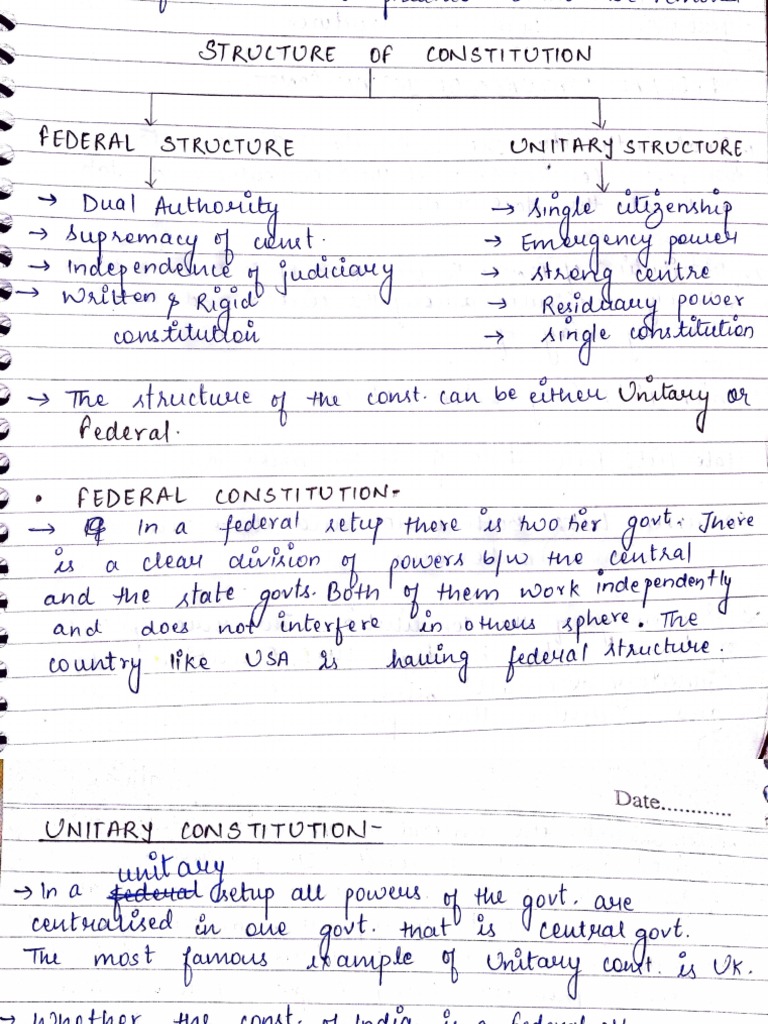 STRUCTURE OF CONSTITUTION
FEDERAL STRUCTURE UNITARY STRUCTURE
→ Dual Authority → single citizenship
→ supremacy of const. → Emergency power
→ Independence of judiciary → strong centre
→ written & Rigid → Residuary power
constitution → single constitution
→ The structure of the const. can be either Unitary or
Federal.
• FEDERAL CONSTITUTION-
→ In a federal setup there is two tier govt. There
is a clear division of powers b/w the central
and the state govts. Both of them work independently
and does not interfere in others sphere. The
country like USA is having federal structure.
Date............
UNITARY CONSTITUTION-
unitary
→ In a federal setup all powers of the govt. are
centralised in one govt. that is central govt.
The most famous example of Unitary const. is UK.
→ Whether the const. of India is a federal